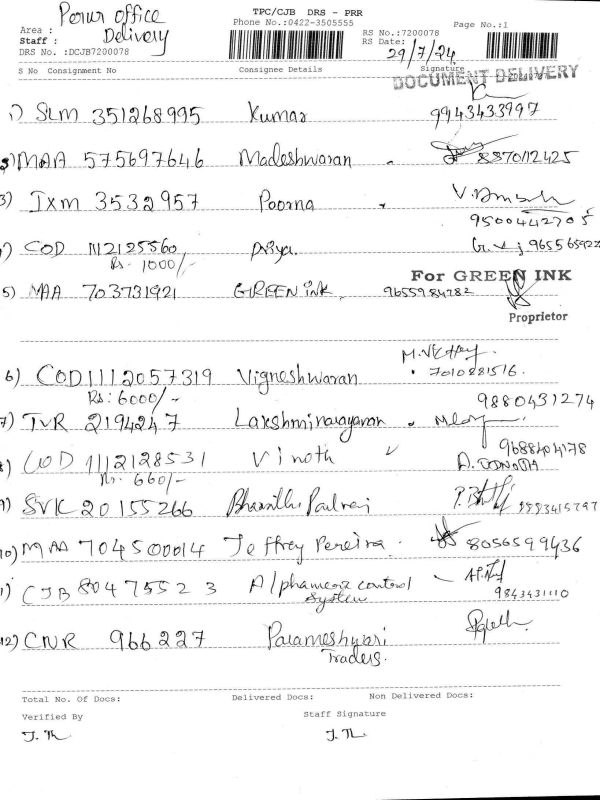 Perur office
Delivery
TPC/CJB DRS - PRR
Phone No.:0422-3505555
Page No.:1
Area :
Staff :
DRS No. :DCJB7200078
RS No.:7200078
RS Date: 29/7/24
S No Consignment No Consignee Details Signature
DOCUMENT DELIVERY
1) SLM 351268995 Kumar 9943433997
MAA 575697646 Madeshwaran 8870112425
3) IXM 3532957 Poorna
9500442705
COD 1112125560 Priya. 965565922
Rs. 1000/-
For GREEN INK
5) MAA 703731921 GREEN iNK. 9655984782
Proprietor
6) COD 1112057319 Vigneshwaran 7010281516.
Rs: 6000/-
7) TVR 2194247 Lakshminarayanan 9880431274
COD 1112128531 Vinoth 9688404178
Rs. 660/-
9) SVK 20155266
10) MAA 704500014 Jeffrey Pereira. 8056599436
CJB 80475523 control
System 9843431110
12) CNR 966227 Parameshwari
Traders.
Total No. Of Docs: Delivered Docs: Non Delivered Docs:
Verified By Staff Signature